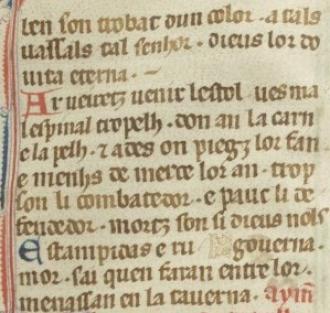 len son trobat dun color · a tals
uassals tal senhor · dieus lor do
uita eterna · ~
Ar ueiretz uenir lestol · ues ma
lespinal tropelh · don an la carn
e la pelh · z ades on pieg lor fan
e menhs de merce lor an · trop
son li combatedor · e pauc li de
fendedor · mortz son si dieus nols
Estampidas e ru gouerna ·
mor · sai quen faran entre lor ·
menassan en la tauerna · aym